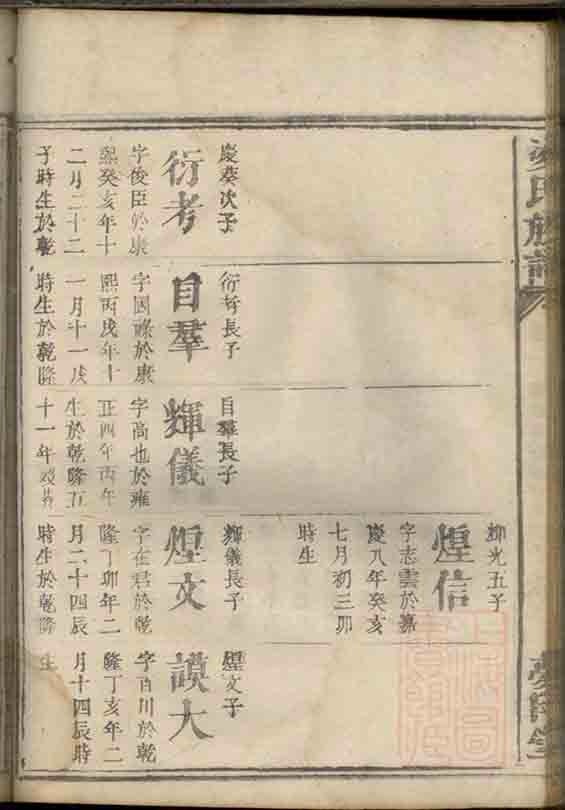 慶葵次子
衍考
字俊臣於康
熙癸亥年十
二月二十二
子時生於乾
衍考長子
目羣
字因祿於康
熙丙戌年十
一月十一戌
時生於乾隆
目羣長子
輝儀
字高也於雍
正四年丙午
生於乾隆五
十一年
輝光五子
煌信
字志雲於嘉
慶八年癸亥
七月初三卯
時生
輝儀長子
煌文
字在君於乾
隆丁卯年二
月二十四辰
時生於乾隆
煌文子
謨大
字百川於乾
隆丁亥年二
月十四辰時
生
氏族譜